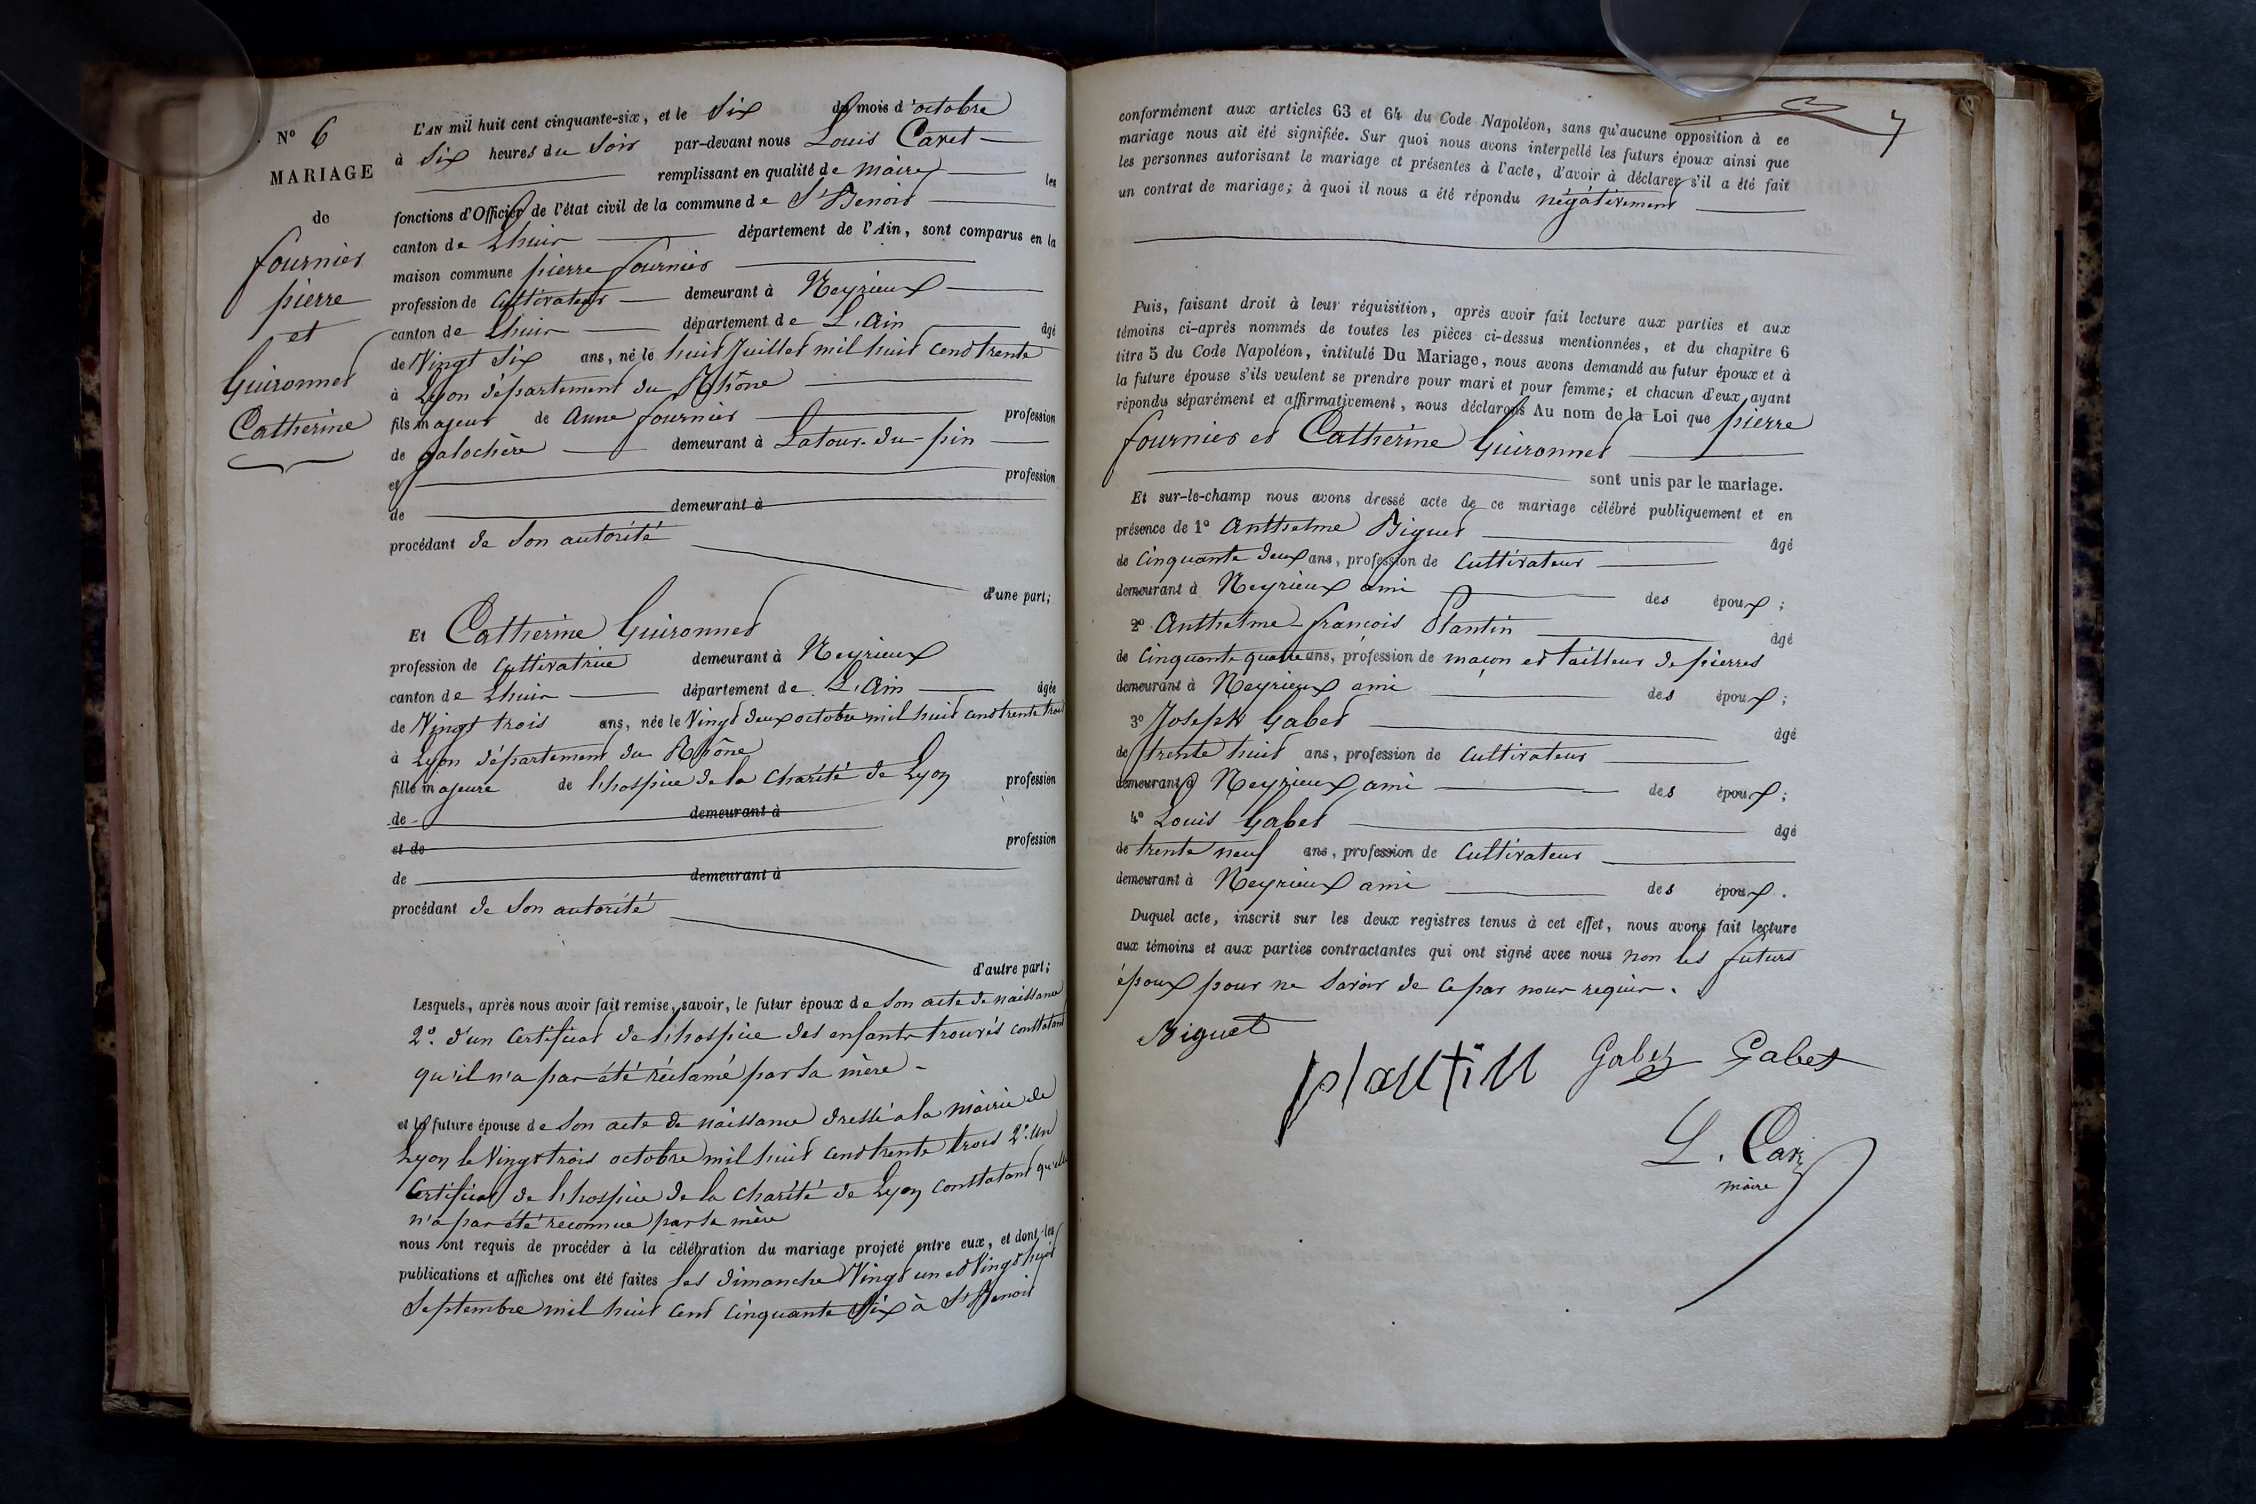 N° 6
MARIAGE
de
fournier
pierre
et
Guironnet
Catherine
L'AN mil huit cent cinquante-six, et le Six du mois d'octobre
à Six heures du Soir par-devant nous Louis Caret
remplissant en qualité de maire les
fonctions d'Officier de l'état civil de la commune de St Benoit
canton de Lhuis département de l'Ain, sont comparus en la
maison commune pierre fournier
profession de Cultivateur demeurant à Neyrieux
canton de Lhuis département de L'Ain âgé
de Vingt Six ans, né le huit Juillet mil huit cent trente
à Lyon département du Rhône
fils majeur de Anne fournier profession
de galochère demeurant à Latour-du-pin
et profession
de demeurant à
procédant de Son autorité
d'une part;
Et Catherine Guironnet
profession de Cultivatrice demeurant à Neyrieux
canton de Lhuis département de L'Ain âgée
de Vingt trois ans, née le Vingt deux octobre mil huit cent trente trois
à Lyon département du Rhône
fille majeure de l'hospice de la Charité de Lyon profession
de demeurant à
et de profession
de demeurant à
procédant de Son autorité
d'autre part;
Lesquels, après nous avoir fait remise, savoir, le futur époux de Son acte de naissance
2° d'un Certificat de l'hospice des enfants trouvés constatant
qu'il n'a pas été réclamé par sa mère -
et la future épouse de Son acte de naissance dressé à la mairie de
Lyon le Vingt trois octobre mil huit cent trente trois 2° un
Certificat de l'hospice de la Charité de Lyon constatant qu'elle
n'a pas été reconnue par sa mère
nous ont requis de procéder à la célébration du mariage projeté entre eux, et dont les
publications et affiches ont été faites les dimanche Vingt un et Vingt huit
Septembre mil huit cent cinquante Six à St Benoit
7
conformément aux articles 63 et 64 du Code Napoléon, sans qu'aucune opposition à ce
mariage nous ait été signifiée. Sur quoi nous avons interpellé les futurs époux ainsi que
les personnes autorisant le mariage et présentes à l'acte, d'avoir à déclarer s'il a été fait
un contrat de mariage; à quoi il nous a été répondu négativement
Puis, faisant droit à leur réquisition, après avoir fait lecture aux parties et aux
témoins ci-après nommés de toutes les pièces ci-dessus mentionnées, et du chapitre 6
titre 5 du Code Napoléon, intitulé Du Mariage, nous avons demandé au futur époux et à
la future épouse s'ils veulent se prendre pour mari et pour femme; et chacun d'eux ayant
répondu séparément et affirmativement, nous déclarons Au nom de la Loi que pierre
fournier et Catherine Guironnet
sont unis par le mariage.
Et sur-le-champ nous avons dressé acte de ce mariage célébré publiquement et en
présence de 1° Anthelme Biguet âgé
de Cinquante deux ans, profession de Cultivateur
demeurant à Neyrieux ami des époux;
2° Anthelme françois Plantin âgé
de Cinquante quatre ans, profession de maçon et tailleur de pierres
demeurant à Neyrieux ami des époux;
3° Joseph Gabet âgé
de trente huit ans, profession de Cultivateur
demeurant à Neyrieux ami des époux;
4° Louis Gabet âgé
de trente neuf ans, profession de Cultivateur
demeurant à Neyrieux ami des époux.
Duquel acte, inscrit sur les deux registres tenus à cet effet, nous avons fait lecture
aux témoins et aux parties contractantes qui ont signé avec nous non les futurs
époux pour ne Savoir de ce par nous requis.
Biguet
plantin Gabet Gabet
L. Caret
maire